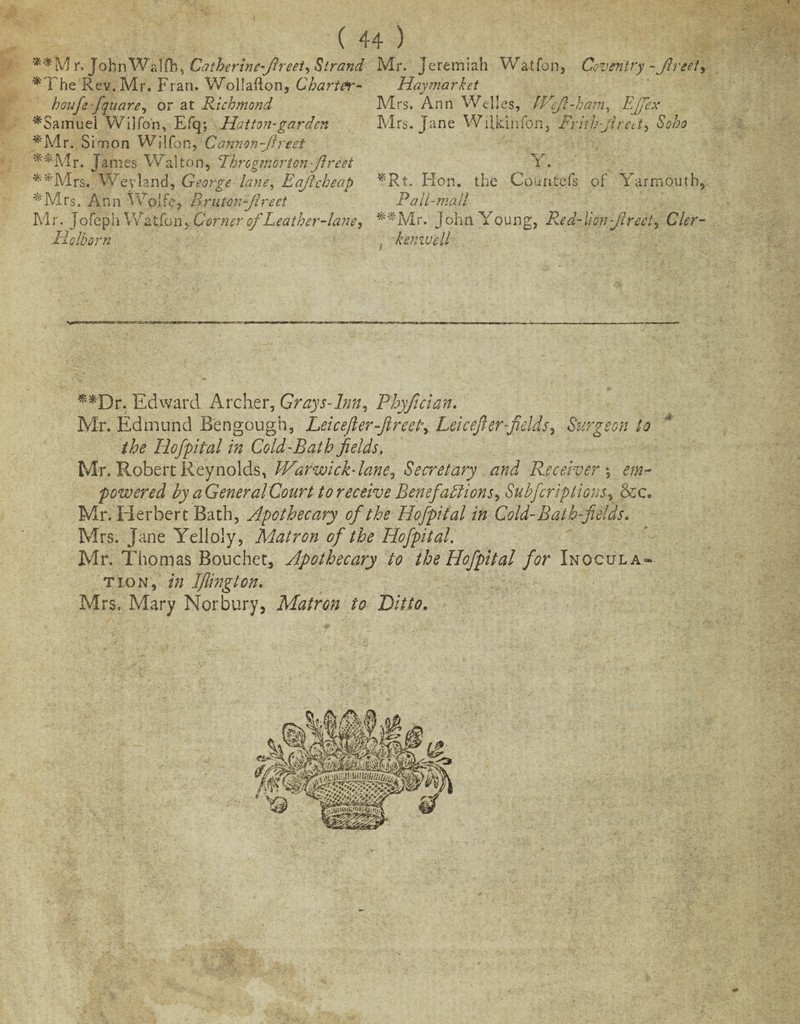 ( 44 )
**Mr. John Walſh, Catherine-ſtreet, Strand
*The Rev. Mr. Fran. Wollaſton, Charter-
houſe-ſquare, or at Richmond
*Samuel Wilſon, Eſq; Hatton-garden
*Mr. Simon Wilſon, Cannon-ſtreet
**Mr. James Walton, Throgmorton-ſtreet
**Mrs. Weyland, George lane, Eaſtcheap
*Mrs. Ann Wolfe, Bruton-ſtreet
Mr. Joſeph Watſon, Corner of Leather-lane,
Holborn
Mr. Jeremiah Watſon, Coventry-ſtreet,
Haymarket
Mrs. Ann Welles, Weſt-ham, Eſſex
Mrs. Jane Wilkinſon, Frith-ſtreet, Soho
Y.
*Rt. Hon. the Counteſs of Yarmouth,
Pall-mall
**Mr. John Young, Red-lion-ſtreet, Cler-
kenwell
**Dr. Edward Archer, Grays-Inn, Phyſician.
Mr. Edmund Bengough, Leiceſter-ſtreet, Leiceſter-fields, Surgeon to
the Hoſpital in Cold-Bath fields.
Mr. Robert Reynolds, Warwick-lane, Secretary and Receiver; em-
powered by a General Court to receive Benefactions, Subſcriptions, &c.
Mr. Herbert Bath, Apothecary of the Hoſpital in Cold-Bath-fields.
Mrs. Jane Yelloly, Matron of the Hoſpital.
Mr. Thomas Bouchet, Apothecary to the Hoſpital for INOCULA-
TION, in Iſlington.
Mrs. Mary Norbury, Matron to Ditto.